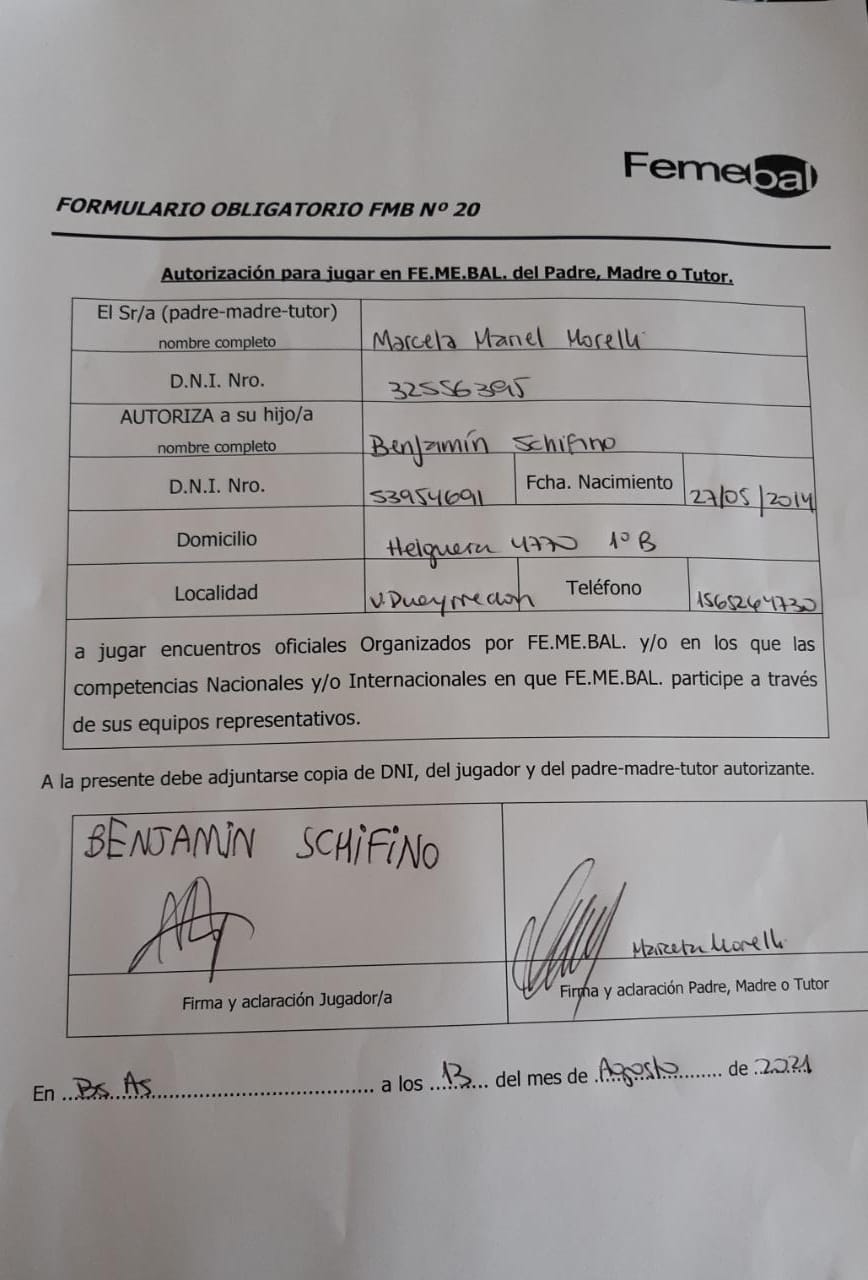 Femebal
FORMULARIO OBLIGATORIO FMB Nº 20
Autorización para jugar en FE.ME.BAL. del Padre, Madre o Tutor.
El Sr/a (padre-madre-tutor)
nombre completo
Marcela Mariel Morelli
D.N.I. Nro.
AUTORIZA a su hijo/a
nombre completo
Benjamín Schifino
D.N.I. Nro.
53954691
Fcha. Nacimiento
27/05/2014
Domicilio
Helguera 4770 1º B
Localidad
V. Pueyrredon
Teléfono
1565264730
a jugar encuentros oficiales Organizados por FE.ME.BAL. y/o en los que las
competencias Nacionales y/o Internacionales en que FE.ME.BAL. participe a través
de sus equipos representativos.
A la presente debe adjuntarse copia de DNI, del jugador y del padre-madre-tutor autorizante.
BENJAMIN SCHIFINO
Marcela Morelli
Firma y aclaración Jugador/a
Firma y aclaración Padre, Madre o Tutor
En Bs As a los 13 del mes de Agosto de 2021